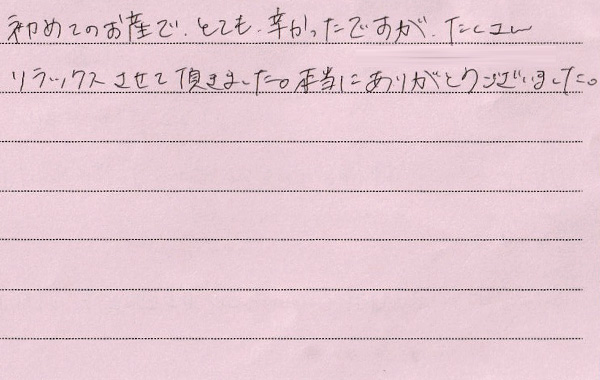 初めてのお産で、とても、辛かったですが、たくさん
リラックスさせて頂きました。本当にありがとうございました。